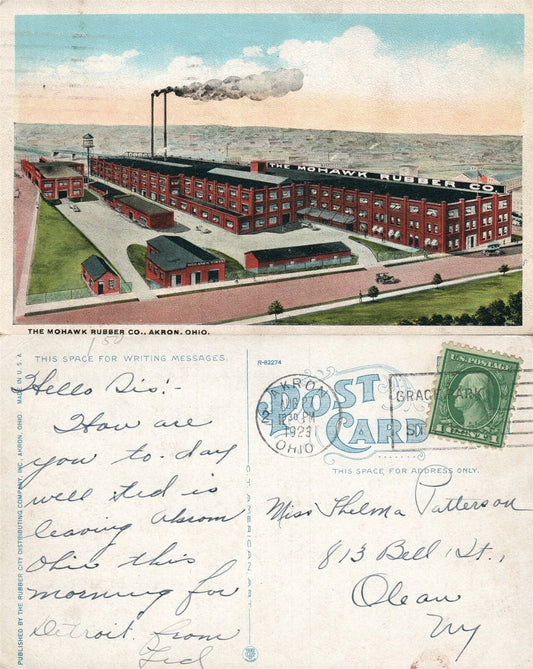 THE MOHAWK RUBBER CO.
THE MOHAWK RUBBER CO., AKRON, OHIO.
150
THIS SPACE FOR WRITING MESSAGES.
Hello Sis!-
How are
you to-day
well Ted is
leaving Akron
Ohio this
morning for
Detroit. from
Ted
PUBLISHED BY THE RUBBER CITY DISTRIBUTING COMPANY, INC. AKRON, OHIO. MADE IN U.S.A.
R-82274
POST CARD
AKRON
2
1923
OHIO
GRACE PARK
U.S. POSTAGE
1 CENT 1
THIS SPACE FOR ADDRESS ONLY.
Miss Thelma Patterson
813 Bell St.,
Olean
NY